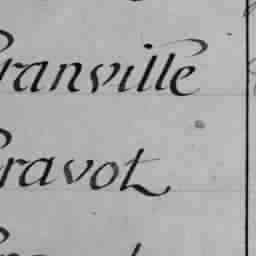 Granville
Gravot